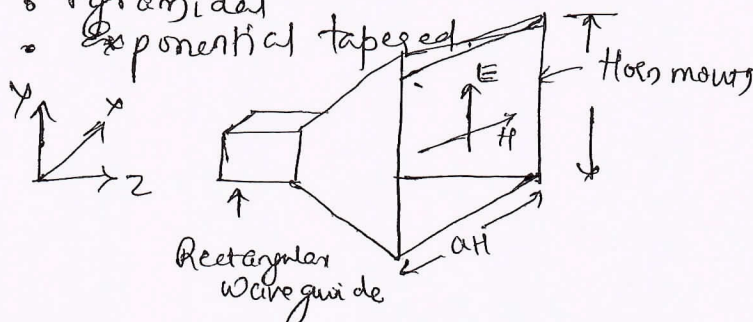 • Pyramidal
• Exponential tapered.
Y
X
Z
E
H
Horn mouth
aH
Rectangular
waveguide